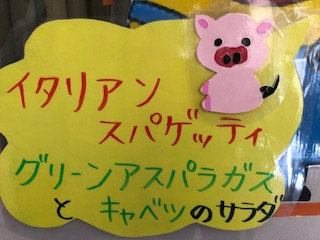 イタリアン
スパゲッティ
グリーンアスパラガス
と キャベツのサラダ